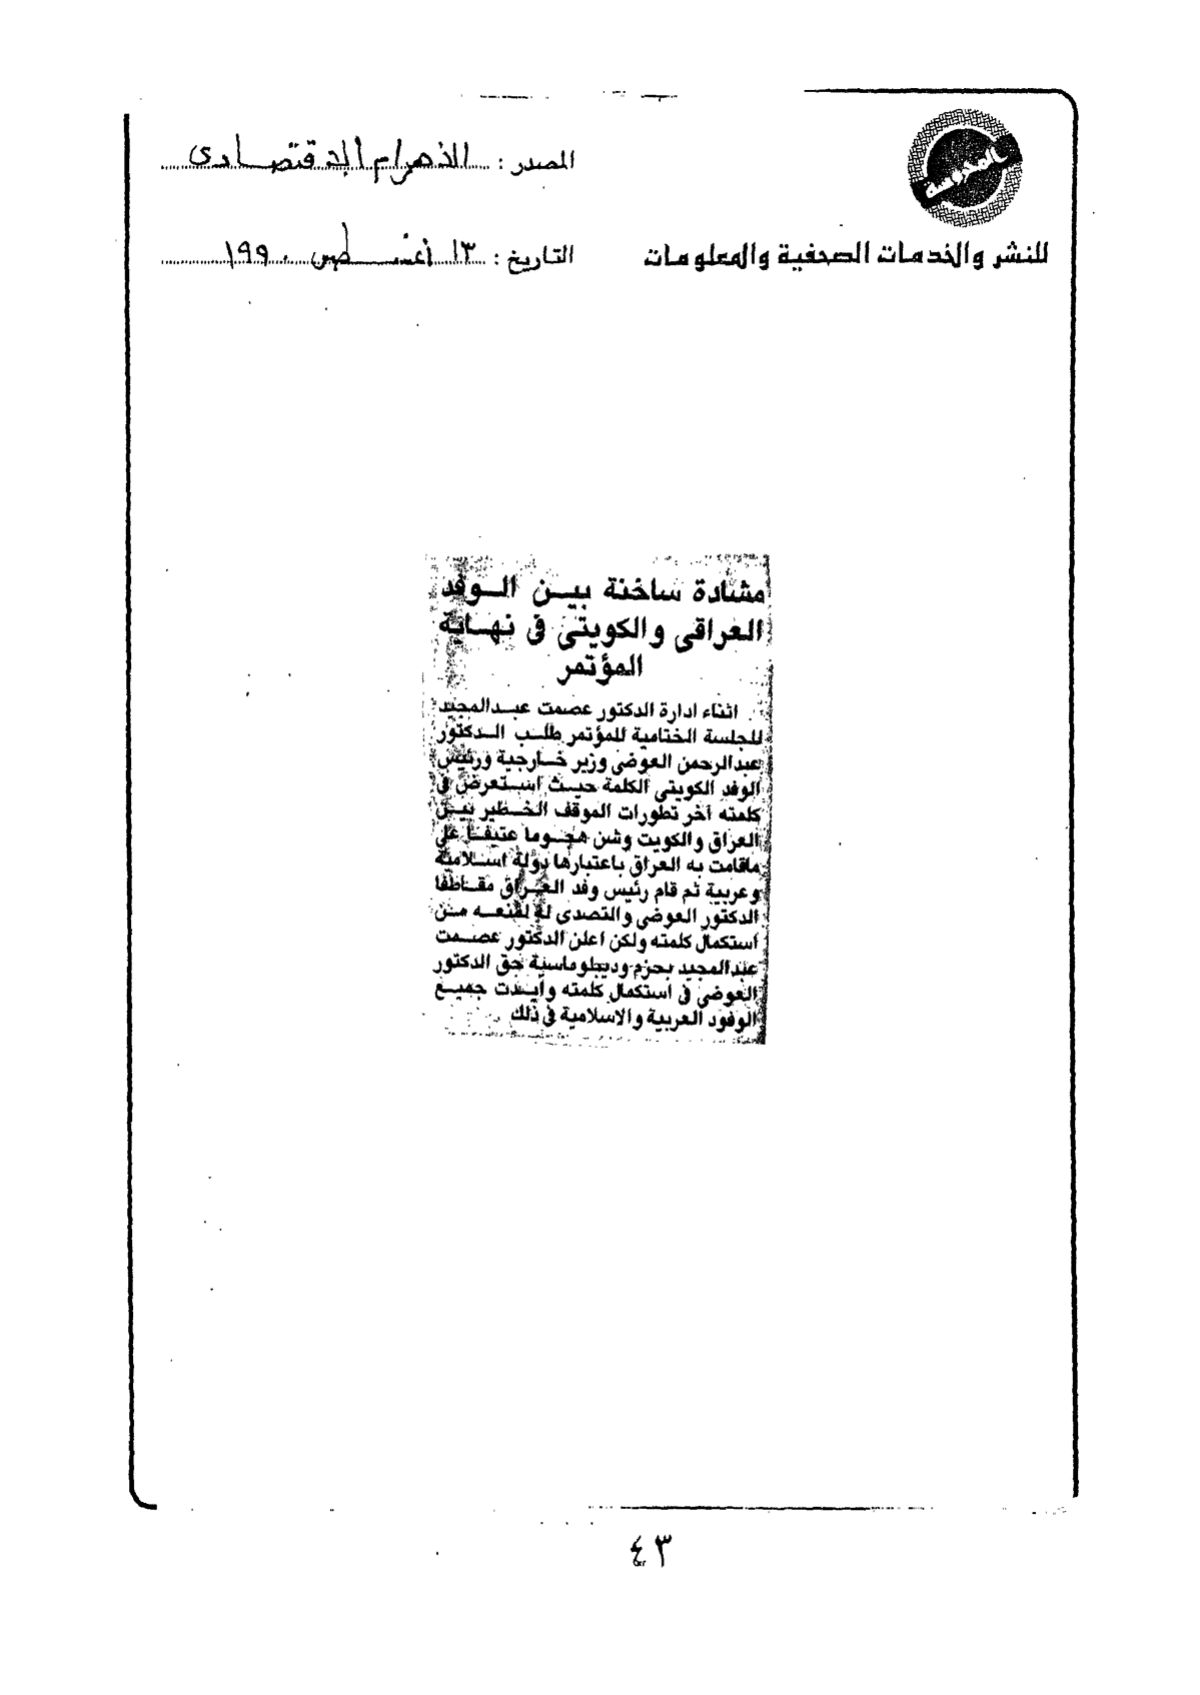 المحروسة
للنشر والخدمات الصحفية والمعلومات
المصدر : الأهرام الاقتصادى
التاريخ : ١٣ أغسطس ١٩٩٠
مشادة ساخنة بيـن الـوفد
العراقى والكويتى فى نهـاية
المؤتمر
اثناء ادارة الدكتور عصمت عبـدالمجيد
للجلسة الختامية للمؤتمر طلـب الـدكتور
عبدالرحمن العوضى وزير خـارجية ورئيس
الوفد الكويتى الكلمة حيـث استعرض فى
كلمته اخر تطورات الموقف الخـطير بيـن
العراق والكويت وشن هجـوما عنيفـا على
ماقامت به العراق باعتبارها دولة اسـلامية
وعربية ثم قام رئيس وفد العـراق مقـاطعا
الدكتور العوضى والتصدى له لمنعـه مـن
استكمال كلمته ولكن اعلن الدكتور عصـمت
عبدالمجيد بحزم وديبلوماسية حق الدكتور
العوضى فى استكمال كلمته وأيـدت جميـع
الوفود العربية والاسلامية فى ذلك
٤٣